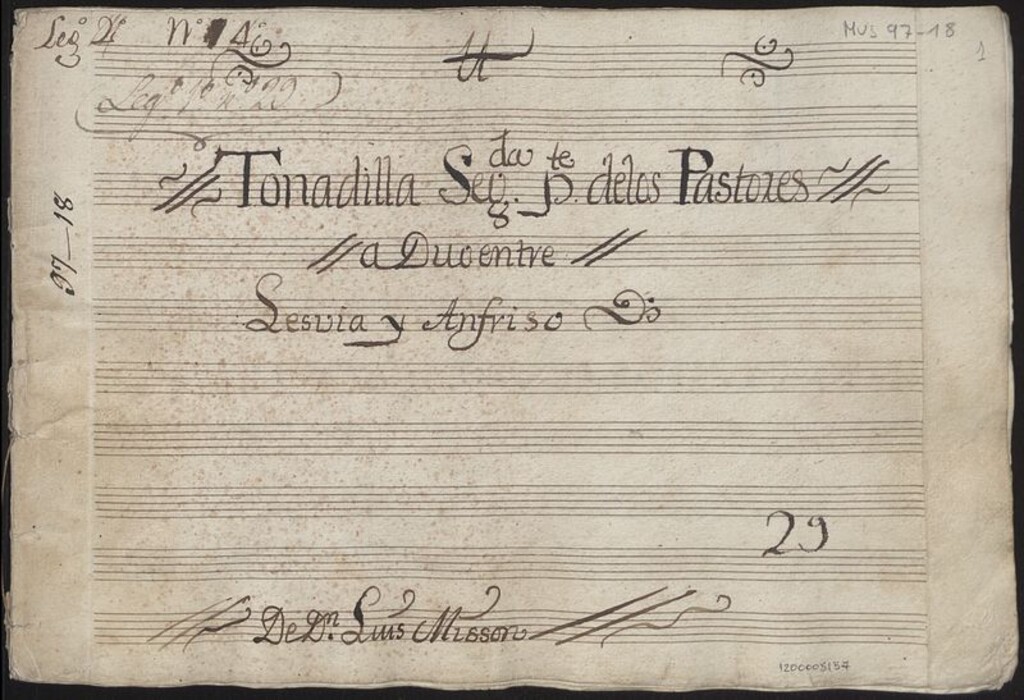 Leg.º 2º Nº 4º
MUS 97-18
1
Leg.º 1º nº 29
97-18
Tonadilla Seg.da p.te delos Pastores
a Duo entre
Lesvia y Anfriso
29
De Dn. Luis Misson
1200005157